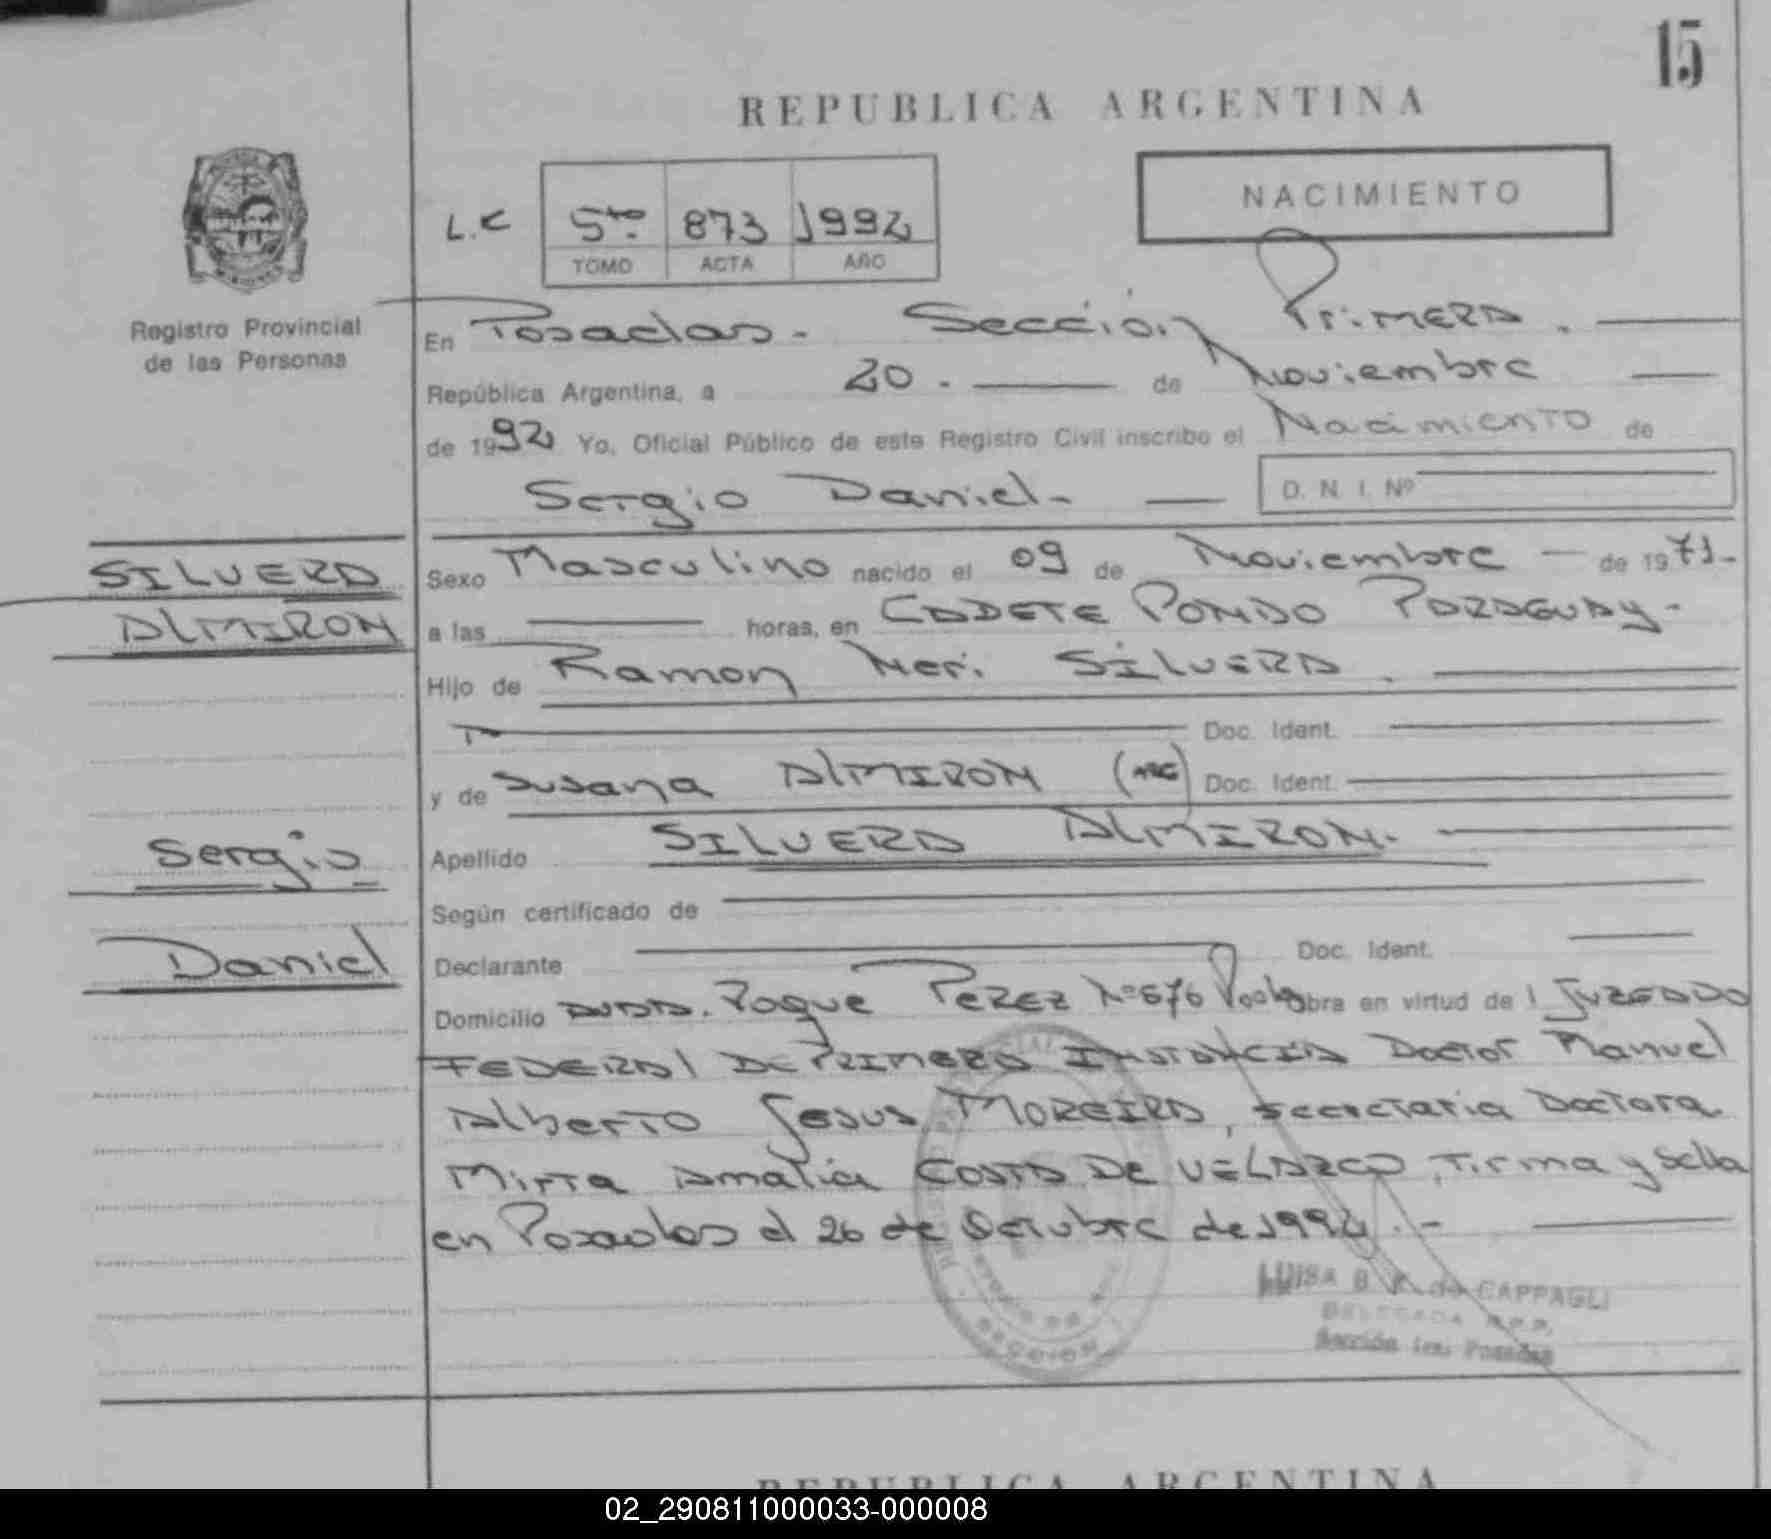 15
REPUBLICA ARGENTINA
NACIMIENTO
L.C 5to. 873 1992
TOMO ACTA AÑO
Registro Provincial
de las Personas
En Posadas - Sección Primera.
República Argentina, a 20. de Noviembre
de 1992 Yo, Oficial Público de este Registro Civil inscribo el Nacimiento de
Sergio Daniel - D. N. I. Nº
SILVERA
ALMIRON
Sergio
Daniel
Sexo Masculino nacido el 09 de Noviembre de 1971-
a las horas, en CADETE PANDO PARAGUAY-
Hijo de Ramon Neri SILVERA.
Doc. Ident.
y de Susana ALMIRON Doc. Ident.
Apellido SILVERA ALMIRON.
Según certificado de
Declarante Doc. Ident.
Domicilio AVDA. Roque PEREZ Nº 676 obra en virtud de JUZGADO
FEDERAL DE PRIMERA INSTANCIA Doctor Manuel
Alberto Jesus MOREIRA, secretaria Doctora
Mirta Amalia COSTA DE VELAZCO, Firma y Sella
en Posadas el 26 de Octubre de 1992.-
LUISA B. de CAPPAGLI
DELEGADA R.P.P.
Sección 1ra. Posadas
REPUBLICA ARGENTINA
02_290811000033-000008